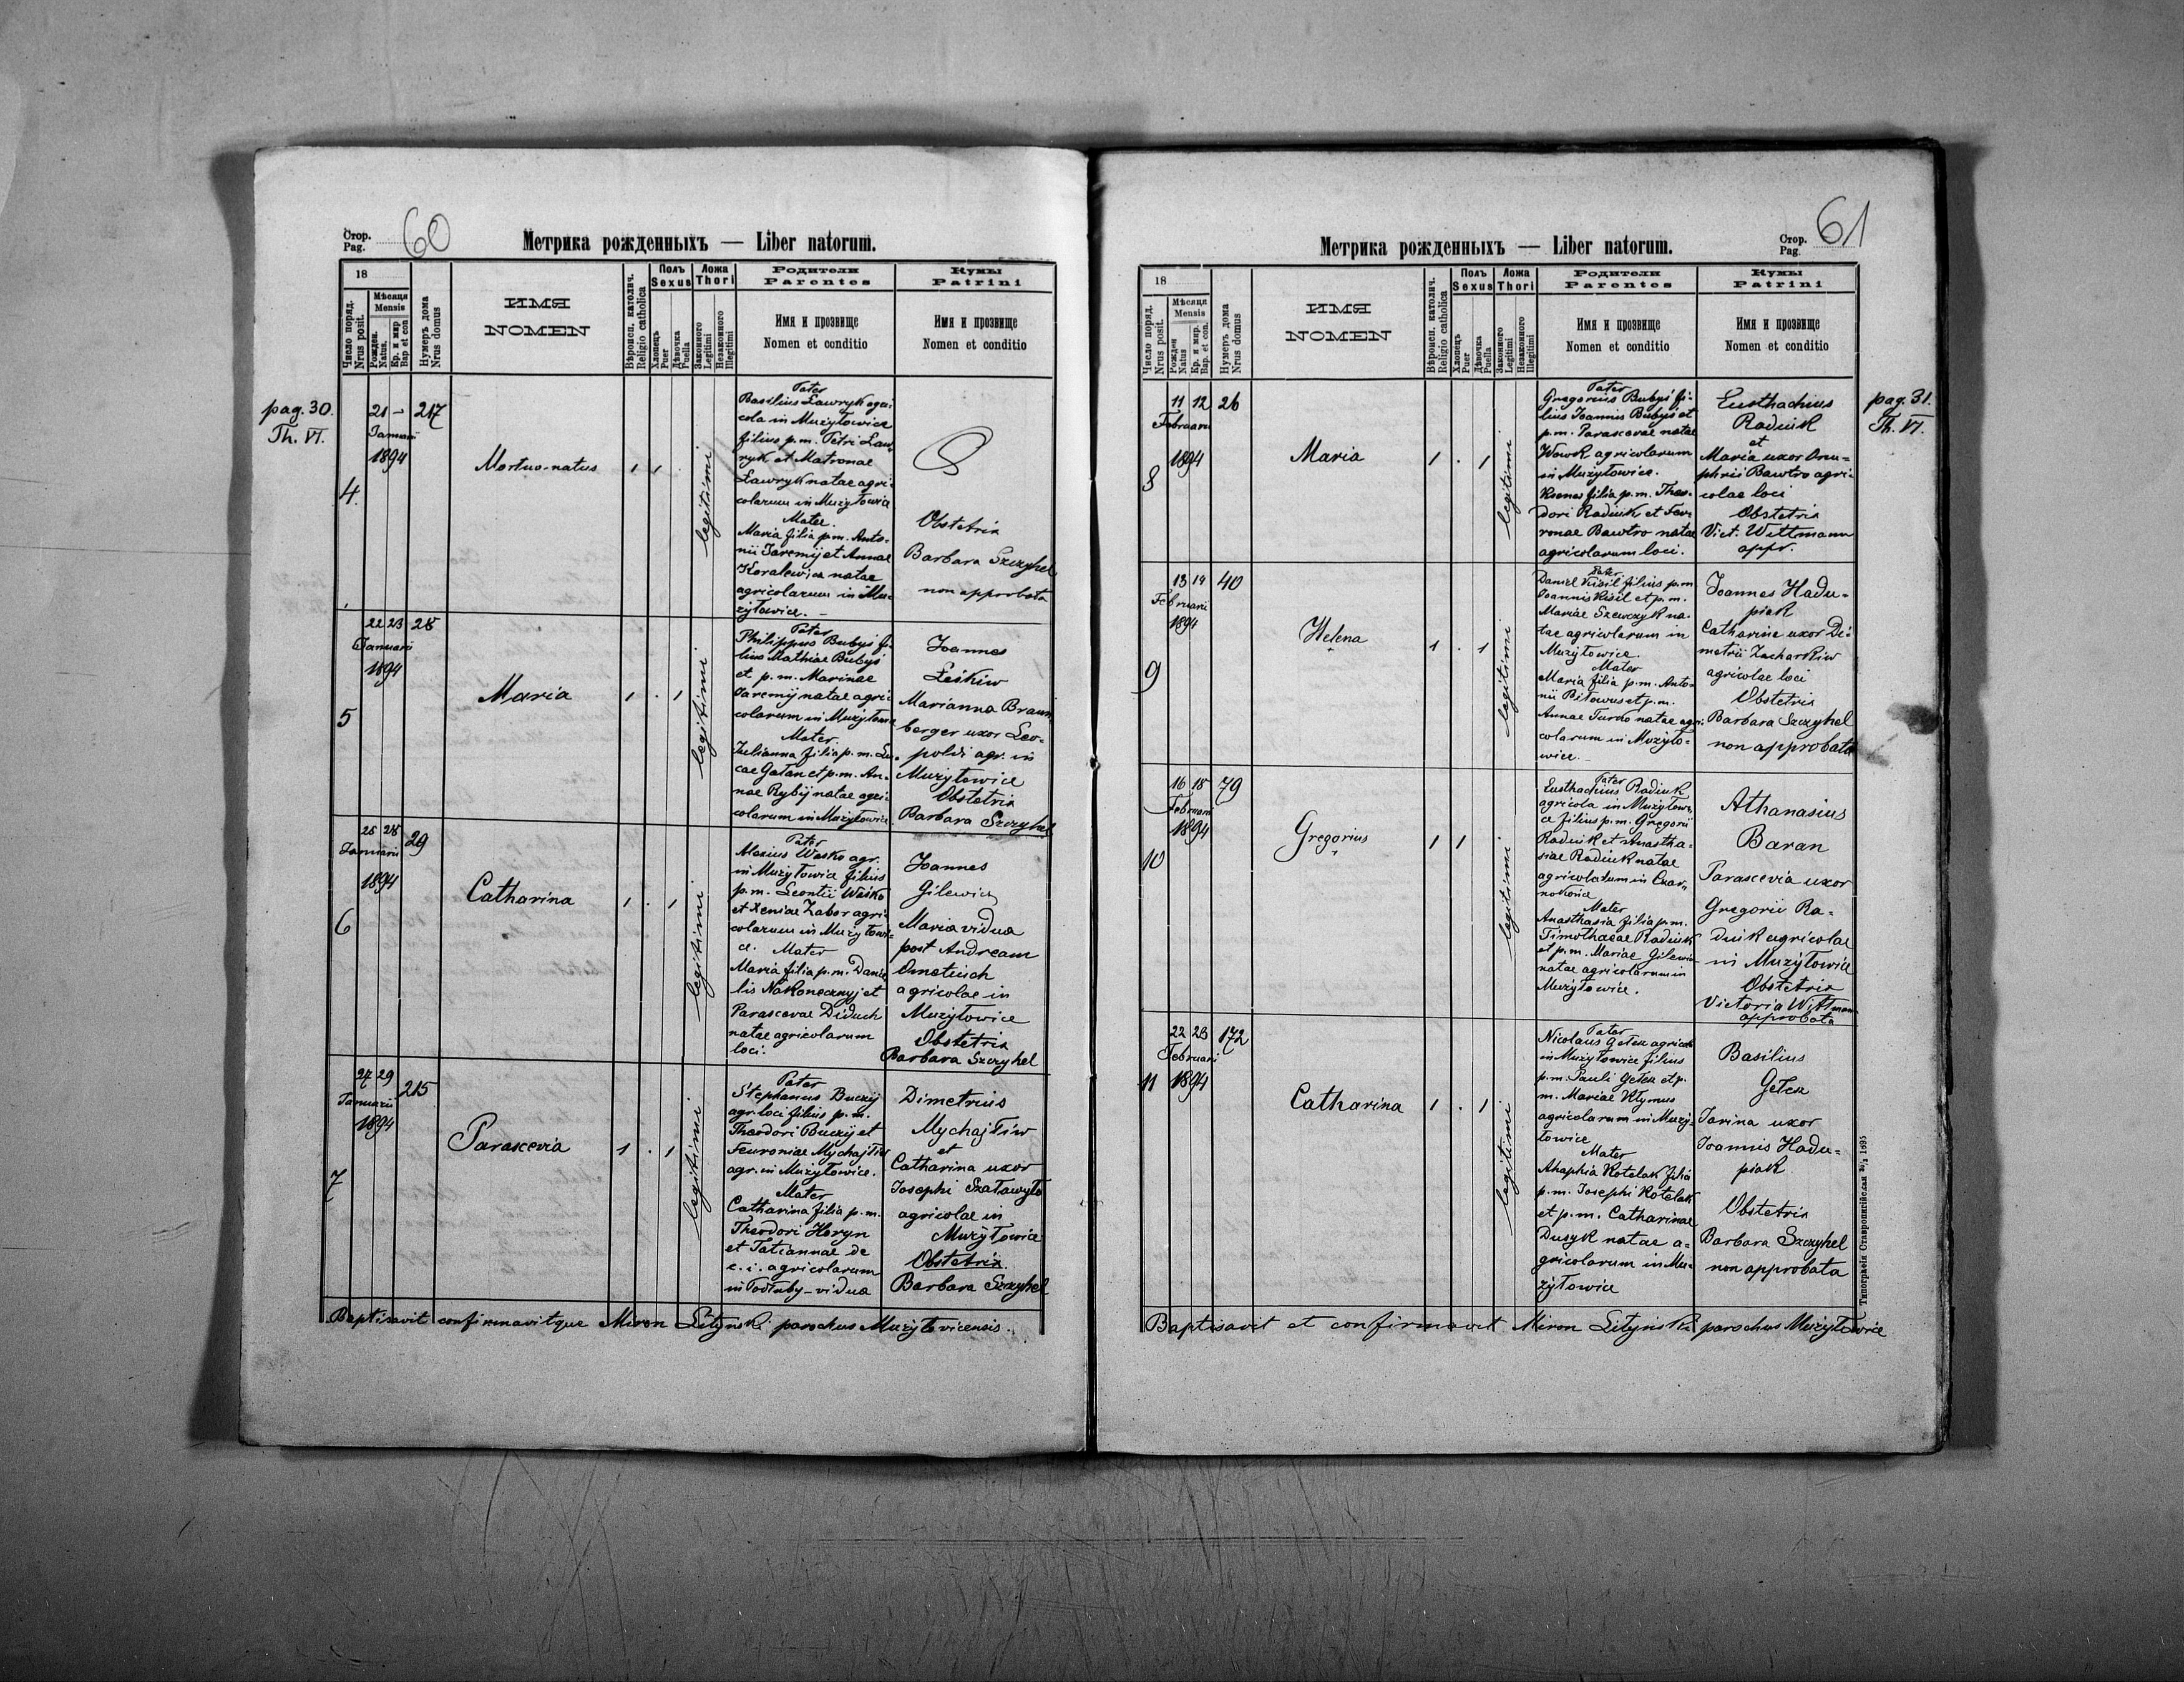 Стор.
Pag.
60
Метрика рожденныхъ — Liber natorum.
18
Число поряд.
Nrus posit.
Мѣсяця
Mensis
Рожден.
Natus.
Кр. и мир
Bap et con
Нумеръ дома
Nrus domus
ИМЯ
NOMEN
Вѣроисп. католич.
Religio catholica
Полъ
Sexus
Хлопецъ
Puer
Дѣвочка
Puella
Ложа
Thori
Законного
Legitimi
Незаконного
Illegitimi
Родители
Parentes
Имя и прозвище
Nomen et conditio
Кумы
Patrini
Имя и прозвище
Nomen et conditio
pag. 30.
Th. VI.
4.
21 —
Januarii
1894
217
Mortuo-natus
1 1
legitimi
Pater
Basilius Ławryk agri-
cola in Mużyłowice
filius p.m. Petri Ław-
ryk et Matronae
Ławryk natae agri-
colarum in Mużyłowice
Mater.
Maria filia p.m. Anto-
nii Jaremij et Annae
Koralewicz natae
agricolarum in Mu-
żyłowice. —
Obstetrix
Barbara Szczyhel
non approbata
5
22 23
Januarii
1894
28
Maria
1 . 1
legitimi
Pater
Philippus Bubyś fi-
lius Mathiae Bubyś
et p.m. Marinae
Jaremij natae agri-
colarum in Mużyłowice
Mater.
Julianna filia p.m. Lu-
cae Gałan et p.m. An-
nae Rybij natae agri-
colarum in Mużyłowice
Joannes
Leśkiw
Marianna Braun-
berger uxor Leo-
poldi agr. in
Mużyłowice
Obstetrix
Barbara Szczyhel
6
25 28
Januarii
1894
29
Catharina
1 . 1
legitimi
Pater
Alexius Waśko agr.
in Mużyłowice filius
p.m. Leontii Waśko
et Xeniae Zabor agri-
colarum in Mużyłowi-
ce. Mater
Maria filia p.m. Danie-
lis Nakonecznyj et
Parascevae Diduch
natae agricolarum
loci.
Joannes
Gilewicz
Maria vidua
post Andream
Onatiuch
agricolae in
Mużyłowice
Obstetrix
Barbara Szczyhel
7
27 29
Januarii
1894
215
Parascevia
1 . 1
legitimi
Pater
Stephanus Buczij
agr. loci filius p.m.
Theodori Buczij et
Feuroniae Mychajłiw
agr. in Mużyłowice.
Mater
Catharina filia p.m.
Theodori Horyn
et Tatiannae de
e. i. agricolarum
in Podłuby - vidua
Dimetrius
Mychajłiw
et
Catharina uxor
Josephi Szaławyło
agricolae in
Mużyłowice
Obstetrix.
Barbara Szczyhel
Baptisavit confirmavitque Miron Lityński parochus Mużyłovicensis.
Стор.
Pag.
61
Метрика рожденныхъ — Liber natorum.
18
Число поряд.
Nrus posit.
Мѣсяця
Mensis
Рожден
Natus
Кр. и мир.
Bap. et con.
Нумеръ дома
Nrus domus
ИМЯ
NOMEN
Вѣроисп. католич.
Religio catholica
Полъ
Sexus
Хлопецъ
Puer
Дѣвочка
Puella
Ложа
Thori
Законного
Legitimi
Незаконного
Illegitimi
Родители
Parentes
Имя и прозвище
Nomen et conditio
Кумы
Patrini
Имя и прозвище
Nomen et conditio
pag. 31.
Th. VI.
8
11 12
Februarii
1894
26
Maria
1 . 1
legitimi
Pater
Gregorius Bubyś fi-
lius Joannis Bubyś et
p.m. Parascevae natae
Wowk agricolarum
in Mużyłowice.
Ksenes filia p.m. Theo-
dori Radiuk et Fev-
roniae Bawtro natae
agricolarum loci.
Eusthachius
Radiuk
et
Maria uxor Onu-
phrii Bawtro agri-
colae loci
Obstetrix
Vict. Wittmann
appr.
9
13 14
Februarii
1894
40
Helena
1 . 1
legitimi
Pater
Daniel Kisil filius p.m.
Joannis Kisil et p.m.
Mariae Szewczyk na-
tae agricolarum in
Mużyłowice.
Mater
Maria filia p.m. Anto-
nii Biłowus et p.m.
Annae Turko natae agri-
colarum in Mużyło-
wice. —
Joannes Hadu-
piak
Catharina uxor De-
metrii Zacharkiw
agricolae loci
Obstetrix
Barbara Szczyhel
non approbata
10
16 18
Februarii
1894
79
Gregorius
1 1
legitimi
Pater
Eusthachius Radiuk
agricola in Mużyłowi-
ce filius p.m. Gregorii
Radiuk et Anastha-
siae Radiuk natae
agricolarum in Czar-
nokońce
Mater
Anasthasia filia p.m.
Timothaeae Radiuk
et p.m. Mariae Gilewicz
natae agricolarum in
Mużyłowice.
Athanasius
Baran
Parascevia uxor
Gregorii Ra-
diuk agricolae
in Mużyłowice
Obstetrix
Victoria Wittmann
approbata
11
22 23
Februarii
1894
172
Catharina
1 . 1
legitimi
Pater
Nicolaus Gełesz agricola
in Mużyłowice filius
p.m. Pauli Gełesz et p.
m. Mariae Kłymus
agricolarum in Muży-
łowice
Mater
Ahaphia Kotelak filia
p.m. Josephi Kotelak
et p.m. Catharinae
Dusyk natae a-
gricolarum in Mu-
żyłowice
Basilius
Gełesz
Jarina uxor
Joannis Hadu-
piak
Obstetrix
Barbara Szczyhel
non approbata
Baptisavit et confirmavit Miron Lityński parochus Mużyłowice